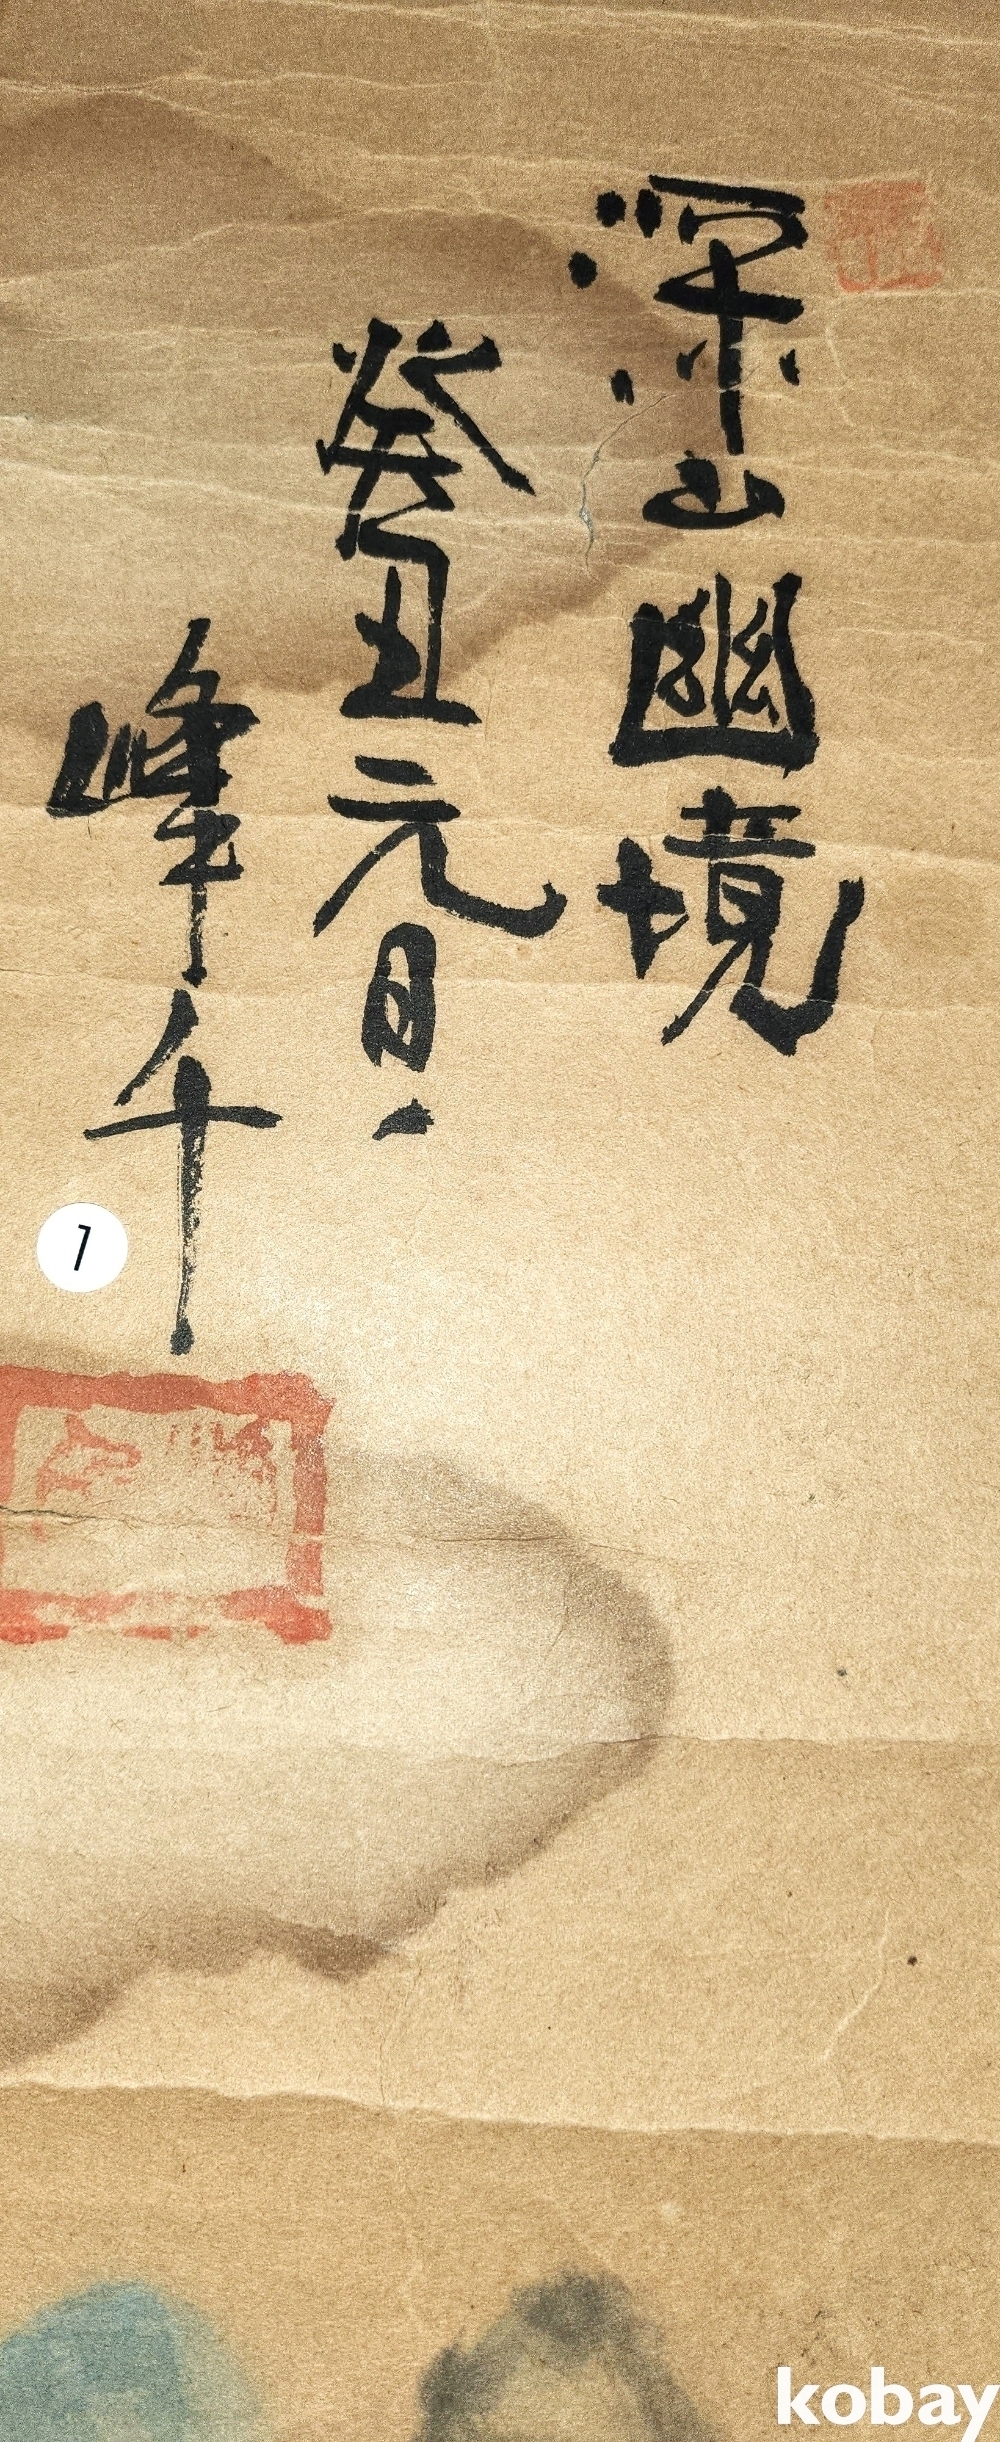 深山幽境
癸丑元日
峰千
1
kobay